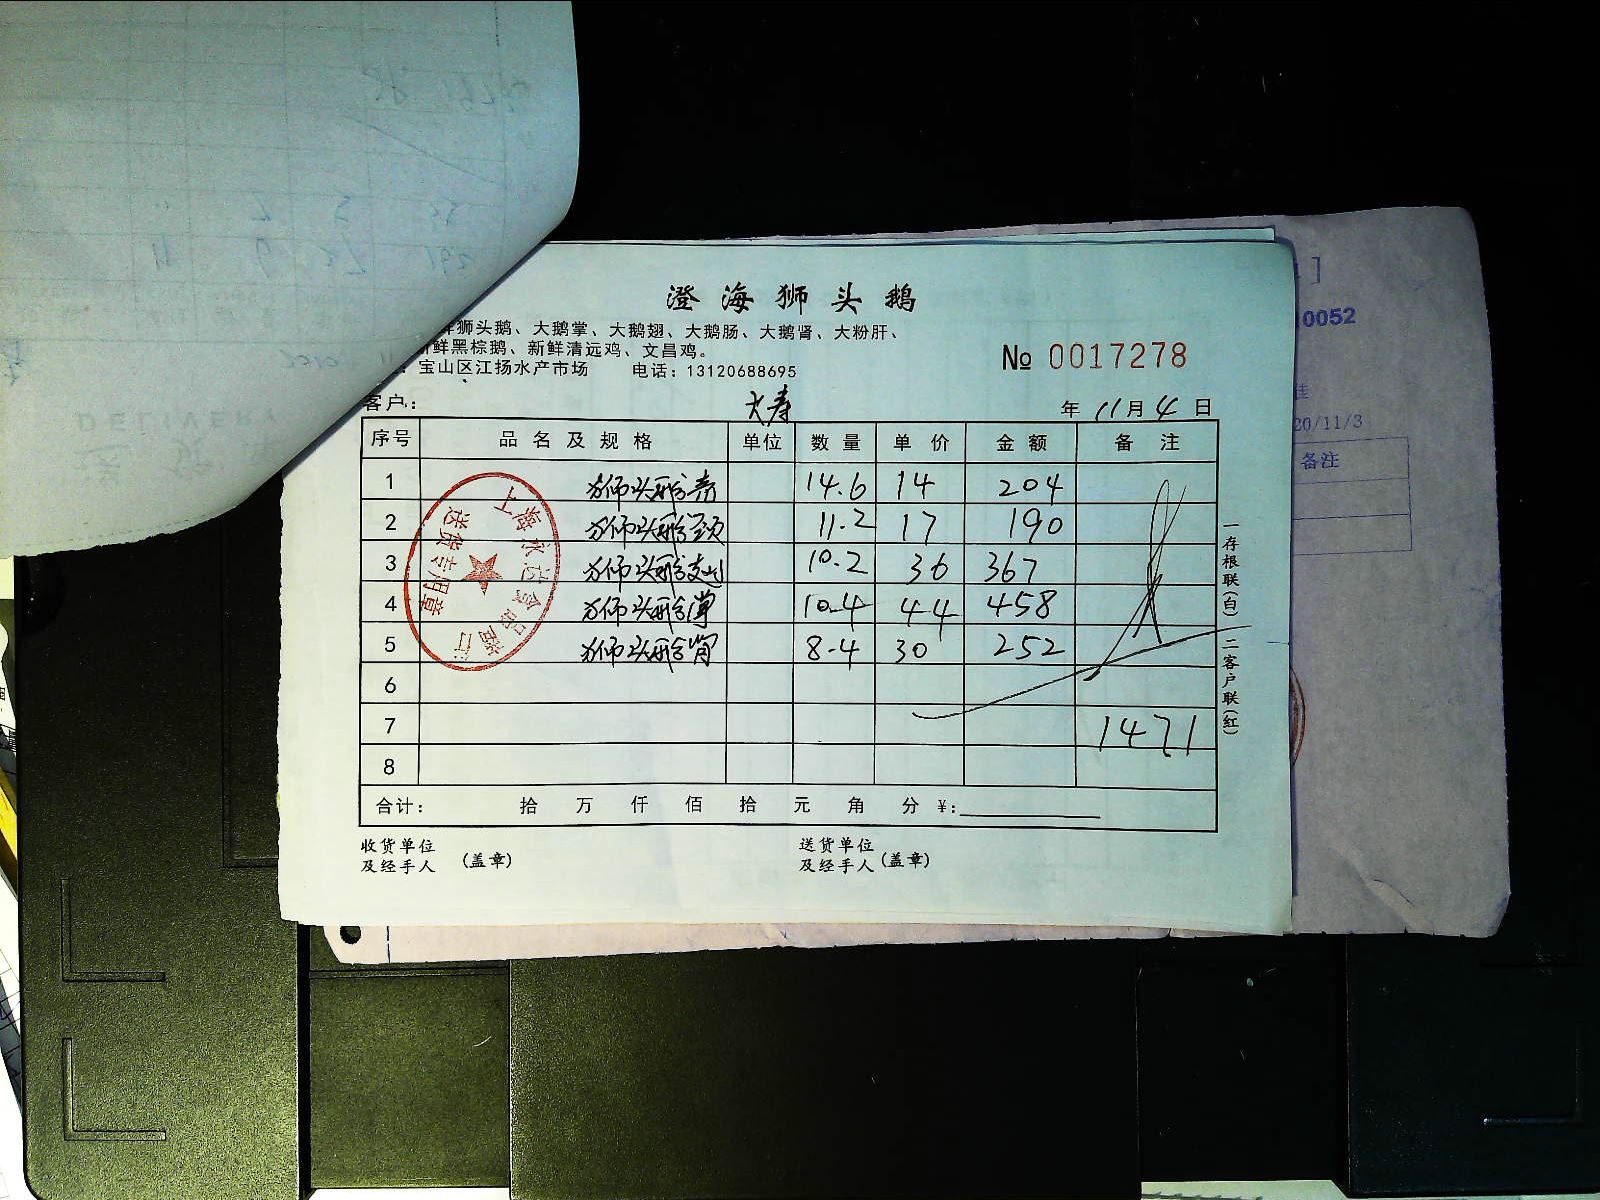 澄海狮头鹅
狮头鹅、大鹅掌、大鹅翅、大鹅肠、大鹅肾、大粉肝、
鲜黑棕鹅、新鲜清远鸡、文昌鸡。
宝山区江扬水产市场 电话：13120688695
№ 0017278
客户： 大寿 年 11 月 4 日
序号 品名及规格 单位 数量 单价 金额 备注
1 狮头鹅 14.6 14 204
2 狮头鹅颈 11.2 17 190
3 狮头鹅 10.2 36 367
4 狮头鹅掌 10.4 44 458
5 狮头鹅肾 8.4 30 252
6
7 1471
8
合计： 拾 万 仟 佰 拾 元 角 分 ¥:
收货单位
及经手人 (盖章)
送货单位
及经手人 (盖章)
一存根联(白) 二客户联(红)
上海永达食品商行
送货专用章
0052
20/11/3
备注
DELIVERY